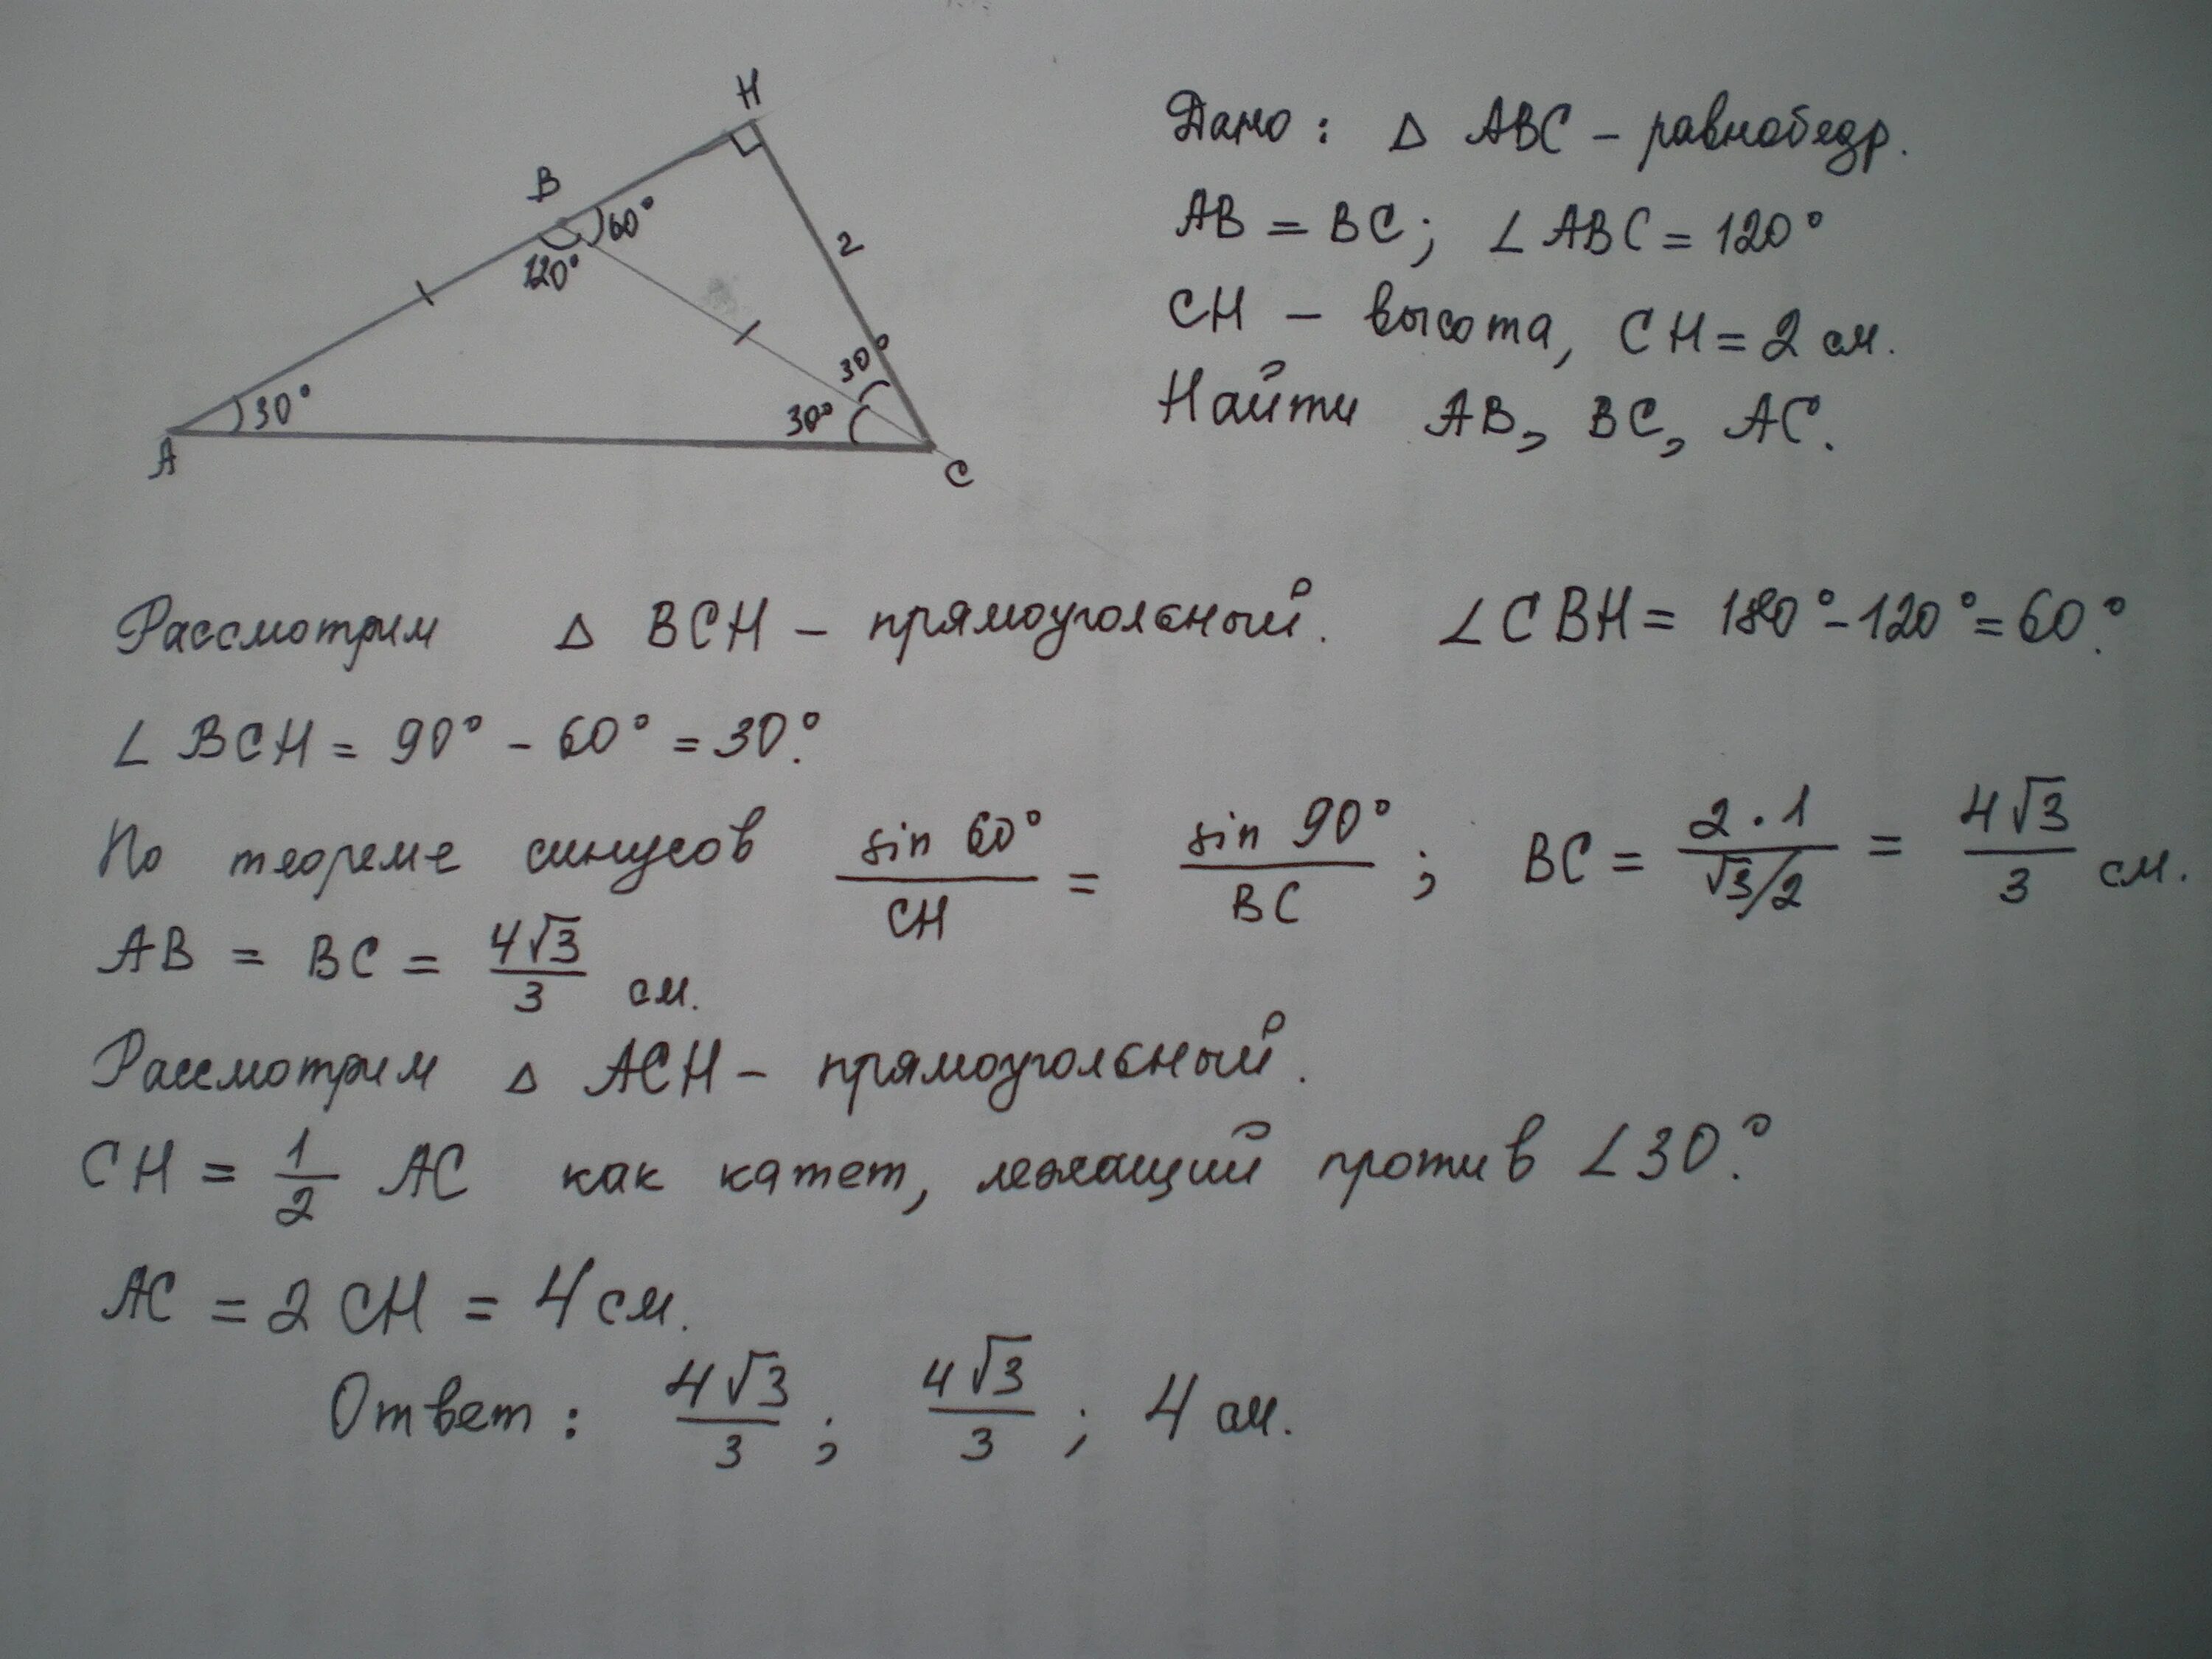 H
B
60°
120°
2
30°
30°
30°
A
C
Дано: △ ABC – равнобедр.
AB = BC; ∠ABC = 120°
CH – высота, CH = 2 см.
Найти AB, BC, AC.
Рассмотрим △ BCH – прямоугольный. ∠CBH = 180° – 120° = 60°.
∠BCH = 90° – 60° = 30°.
По теореме синусов sin 60°/CH = sin 90°/BC; BC = 2·1/(√3/2) = 4√3/3 см.
AB = BC = 4√3/3 см.
Рассмотрим △ ACH – прямоугольный.
CH = 1/2 AC как катет, лежащий против ∠30°.
AC = 2 CH = 4 см.
Ответ: 4√3/3; 4√3/3; 4 см.